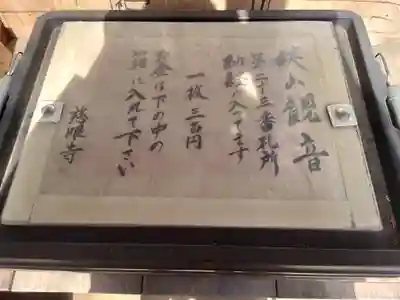 狭山観音
第二十三番札所
御影が入つてます
一枚 三百円
お金は下の中の
箱に入れて下さい
慈眼寺